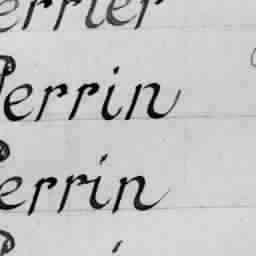 Perrier
Perrin
Perrin